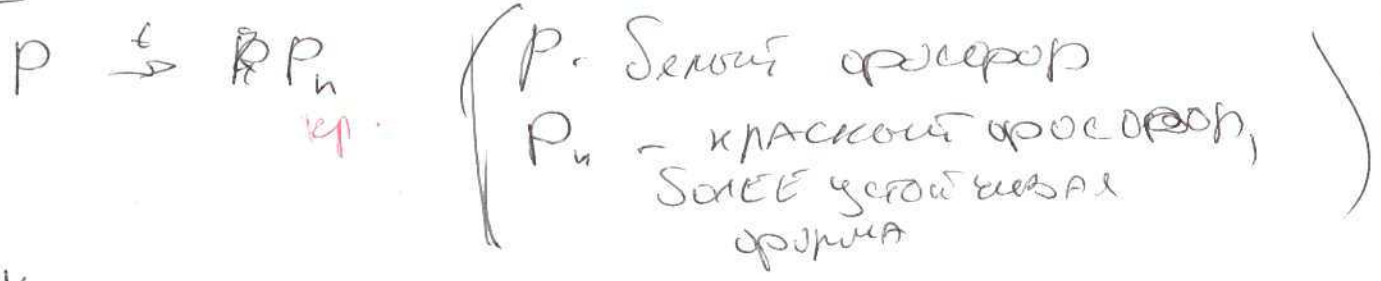 P →t Pn (P. белый фосфор
кр.
Pn - красный фосфор,
более устойчивая
форма)